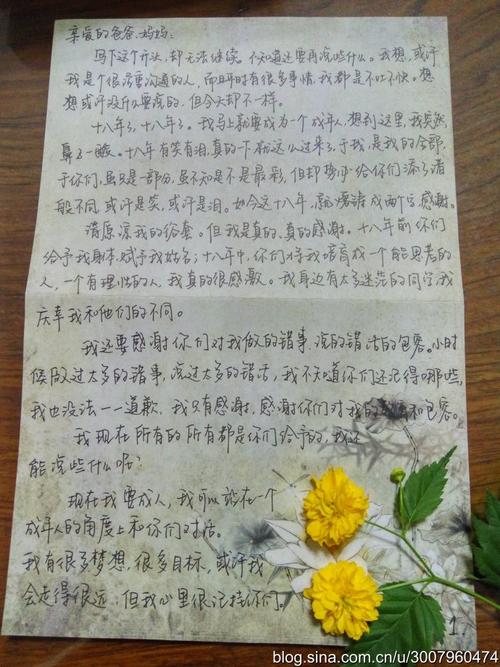 亲爱的爸爸、妈妈：
写下这个开头，却无法继续。不知道还要再说些什么。我想，或许
我是个很需要沟通的人，而那时有很多事情，我都是不吐不快。想
想或许没什么要说的，但今天却不一样。
十八年了，十八年了。我马上就要成为一个成年人，想到这里，我突然
鼻子一酸。十八年有笑有泪，真的下来就这么过来了，于我，是我的全部，
于你们，虽只是一部分，虽不知是不是最彩，但却给你们添了诸
般不同，或许是笑，或许是泪。如今这十八年，就成两个字，感谢。
请原谅我的俗套。但我是真的、真的感谢。十八年前你们
给予我身体，赋予我姓名；十八年中，你们将我培育成一个能思考的
人，一个有理性的人，我真的很感激。我身边有太多迷茫的同学，我
庆幸我和他们的不同。
我还要感谢你们对我做的错事，说的错话的包容。小时
候做过太多的错事，说过太多的错话，我不知道你们还记得哪些，
我也没法一一道歉，我只有感谢，感谢你们对我的和包容。
我现在所有的所有都是你们给予的，我还
能说些什么呢？
现在我要成人，我可以站在一个
成年人的角度上和你们对话。
我有很多梦想，很多目标，或许我
会走得很远，但我心里很记挂你们。
1.
blog.sina.com.cn/u/3007960474